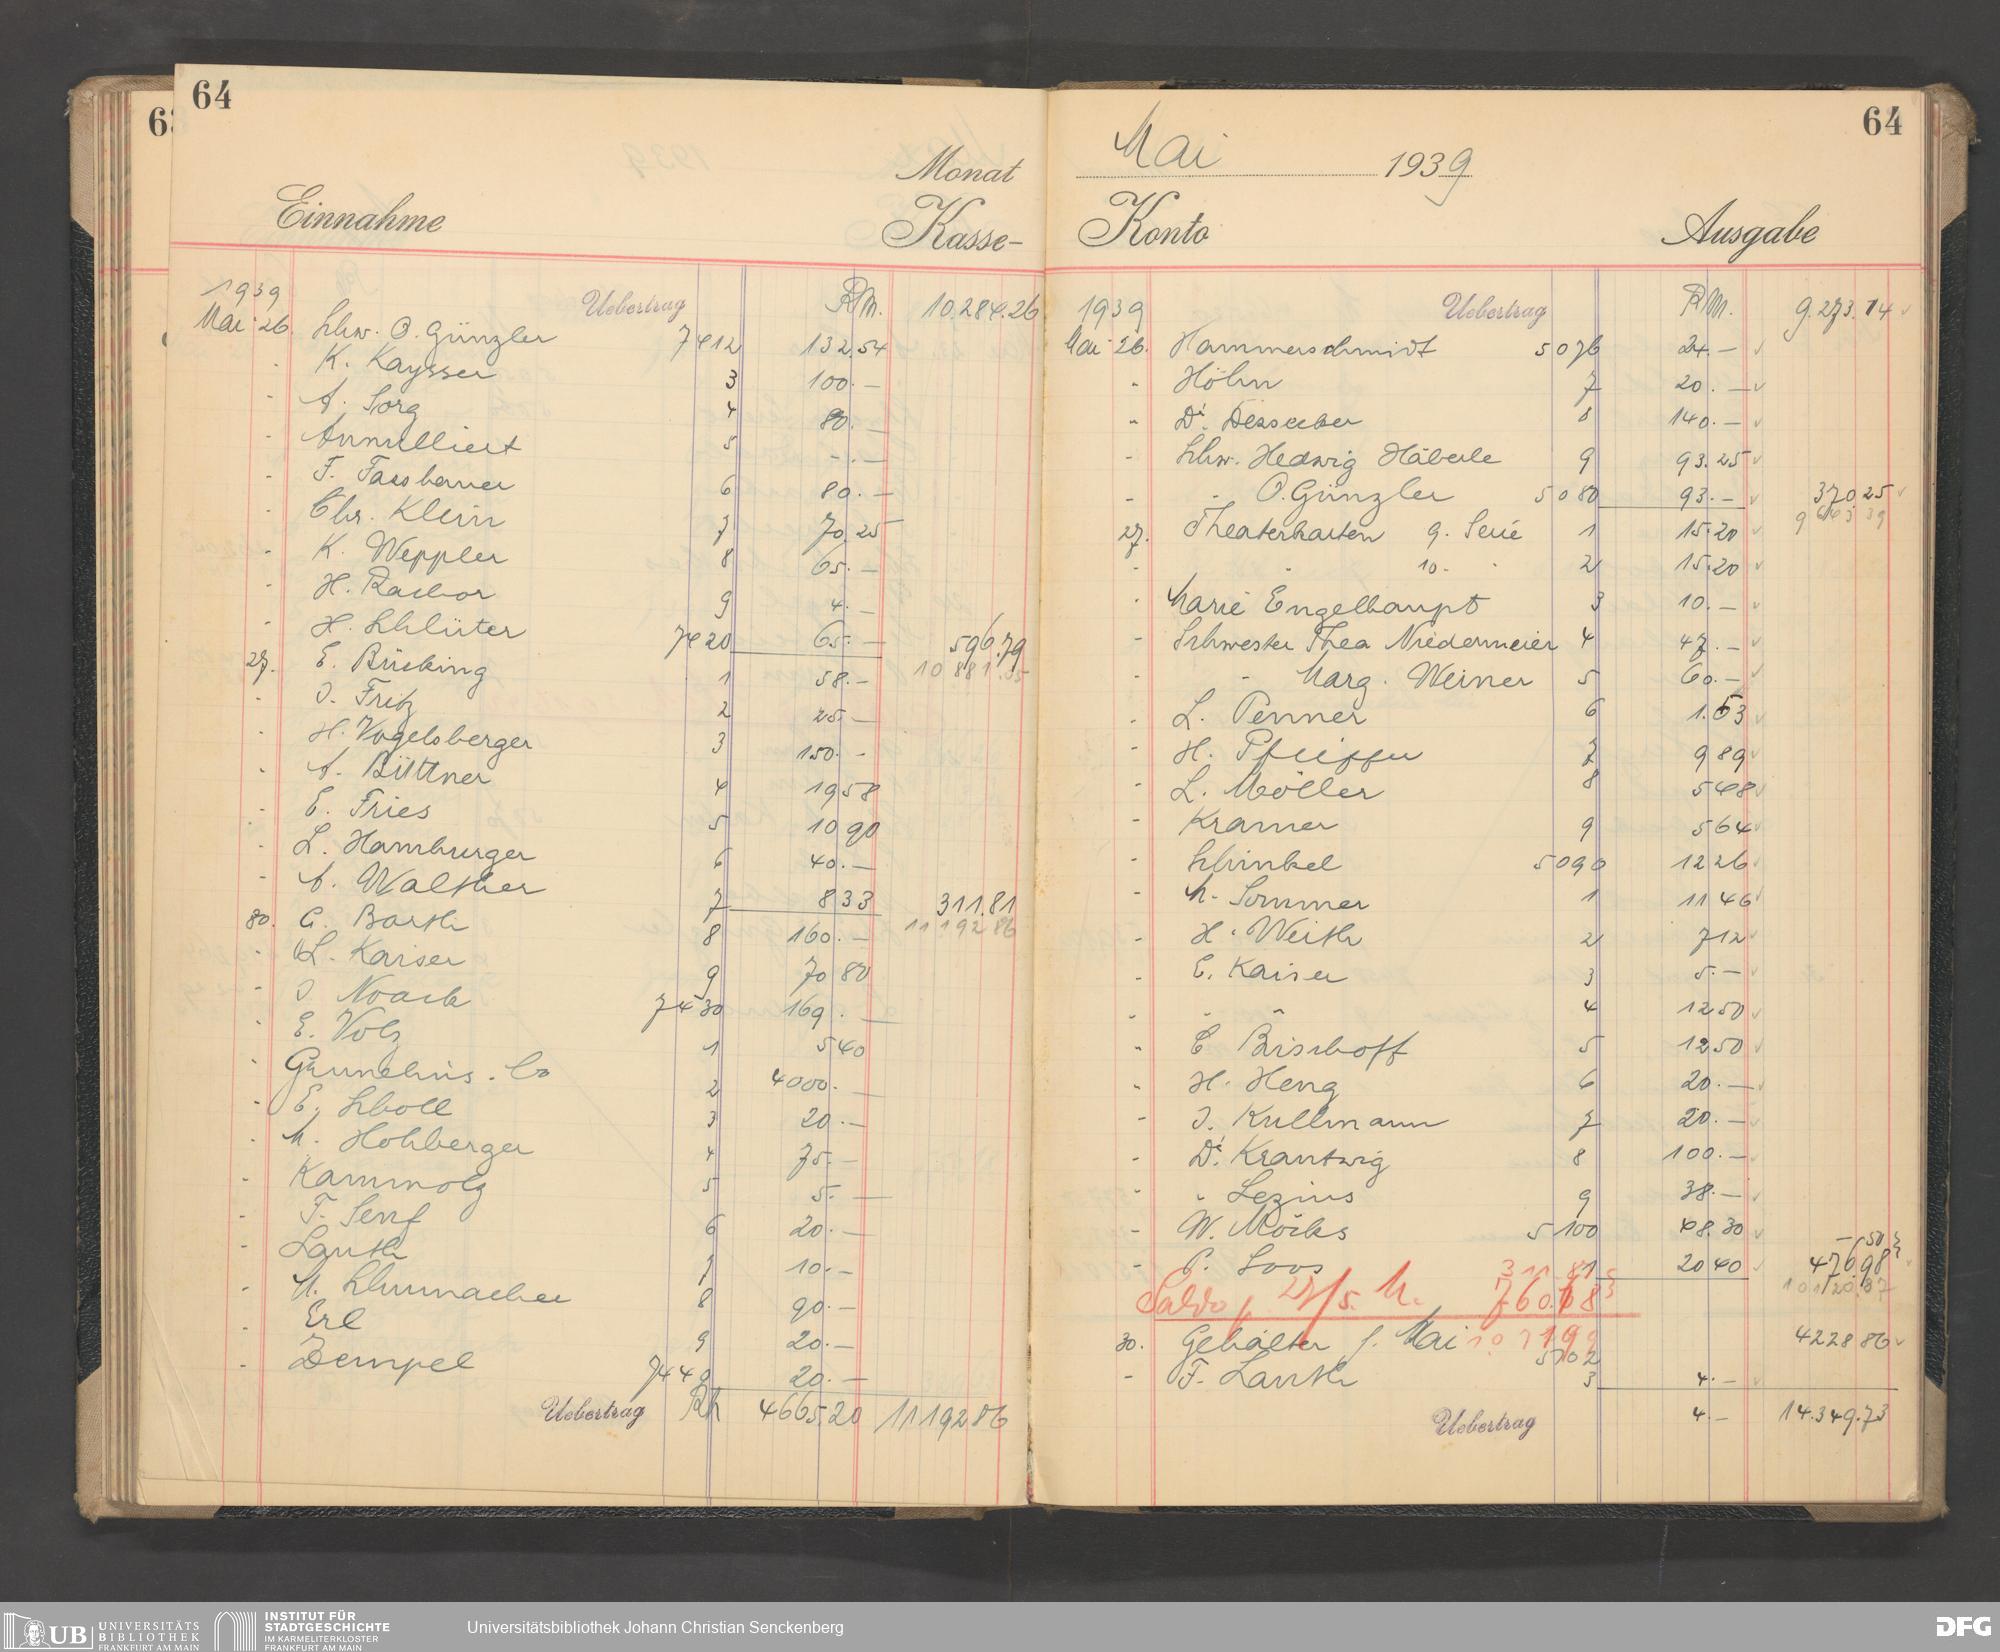 64
Monat
Einnahme
Kasse-
1939
Uebertrag RM. 10.284.26
Mai 26. Schw. O. Günzler 7412 132.54
" K. Kaysser 3 100.—
" A. Sorg 4 80.—
" Annulliert 5 -.—
" F. Fassbauer 6 80.—
" Chr. Klein 7 70.25
" K. Weppler 8 65.—
" H. Rasbor 9 4.—
" H. Schlüter 7420 65.— 596.79
27. E. Bücking 1 58.— 10 881.05
" J. Fritz 2 25.—
" H. Vogelsberger 3 150.-
" A. Büttner 4 19 58
" E. Fries 5 10 90
" L. Hamburger 6 40.—
" A. Walther 7 8 33 311.81
30. G. Barth 8 160.— 11 192 86
" L. Kaiser 9 70 80
" J Noack 7430 169.—
" E. Volz 1 5 40
" Grunelius. Co 2 4000.—
" E. Scholl 3 20.—
" M. Hohberger 4 75.—
" Kammolz 5 5.—
" F. Senf 6 20.—
" Lauth 7 10.—
" M. Schumacher 8 90.—
" Erl 9 20.—
" Dempel 7440 20.—
Uebertrag RM 4665.20 11 192 86
64
Mai 1939
Konto
Ausgabe
1939
Uebertrag RM. 9.273.14
Mai 26. Hammerschmidt 5076 24.—
" Höhn 7 20.—
" Dr. Dessecker 8 140.—
" Schw. Hedwig Häberle 9 93.25
" " O. Günzler 5080 93.— 370.25
27. Theaterkarten 9. Serie 1 15.20 9 643 39
" " 10. " 2 15.20
" Marie Engelhaupt 3 10.—
" Schwester Thea Niedermeier 4 47.—
" " Marg. Weiner 5 60.—
" L. Penner 6 1.63
" H. Pfeiffer 7 9 89
" L. Möller 8 5 48
" Kramer 9 5 64
" Schinkel 5090 12 26
" M. Sommer 1 11 46
" H. Weith 2 7 12
" E. Kaiser 3 5.—
" " " 4 12 50
" E Bischoff 5 12 50
" H. Heng 6 20.—
" J. Kullmann 7 20.—
" Dr. Krantwig 8 100.—
" " Lezius 9 38.—
" W. Möcks 5100 48.30
— 50
" P. Loos 1 20 40 476.98
311 81
10 120.87
Saldo 27/5. M. 760.18
30. Gehälter f. Mai 5102 4228 86
" F. Lauth 3 4.—
Uebertrag 4.— 14.349.73
UB UNIVERSITÄTS BIBLIOTHEK FRANKFURT AM MAIN
INSTITUT FÜR STADTGESCHICHTE IM KARMELITERKLOSTER FRANKFURT AM MAIN
Universitätsbibliothek Johann Christian Senckenberg
DFG